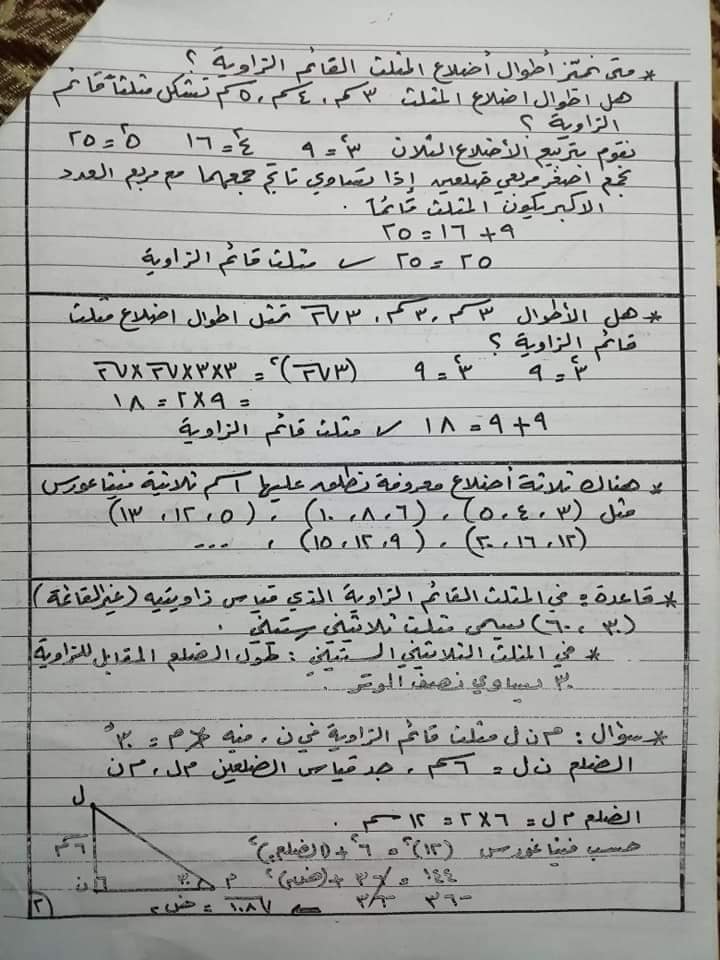 * متى نميّز أطوال أضلاع المثلث القائم الزاوية ؟
هل اطوال اضلاع المثلث ٣سم، ٤سم، ٥سم تشكل مثلثاً قائم
الزاوية ؟
نقوم بتربيع الأضلاع الثلاث ٣² = ٩ ٤² = ١٦ ٥² = ٢٥
نجمع اصغر مربعي ضلعين إذا تساوي ناتج جمعهما مع مربع العدد
الاكبر يكون المثلث قائماً .
٩ + ١٦ = ٢٥
٢٥ = ٢٥ مثلث قائم الزاوية
* هل الأطوال ٣سم، ٣سم، ٣√٢ تمثل اطوال اضلاع مثلث
قائم الزاوية ؟
٣² = ٩ ٣² = ٩ (٣√٢)² = ٣×٣×√٢×√٢
= ٩×٢ = ١٨
٩ + ٩ = ١٨ مثلث قائم الزاوية
* هناك ثلاثة أضلاع معروفة نطلق عليها اسم ثلاثية فيثاغورس
مثل (٣، ٤، ٥) ، (٦، ٨، ١٠) ، (٥، ١٢، ١٣)
(١٢، ١٦، ٢٠) ، (٩، ١٢، ١٥) ، ...
* قاعدة : في المثلث القائم الزاوية الذي قياس زاويتيه (غير القائمة)
(٣٠، ٦٠) يسمى مثلث ثلاثيني ستيني .
* في المثلث الثلاثيني الستيني : طول الضلع المقابل للزاوية
٣٠ يساوي نصف الوتر .
* سؤال : م ن ل مثلث قائم الزاوية في ن، فيه ∢م = ٣٠°
الضلع ن ل = ٦سم، جد قياس الضلعين م ل، م ن
الضلع م ل = ٦×٢ = ١٢ سم .
حسب فيثاغورس (١٢)² = ٦² + (الضلع)²
١٤٤ = ٣٦ + (ض)²
-٣٦ ٣٦
√١٠٨ = ض
ل
٦سم
ن
٣٠
م
٢